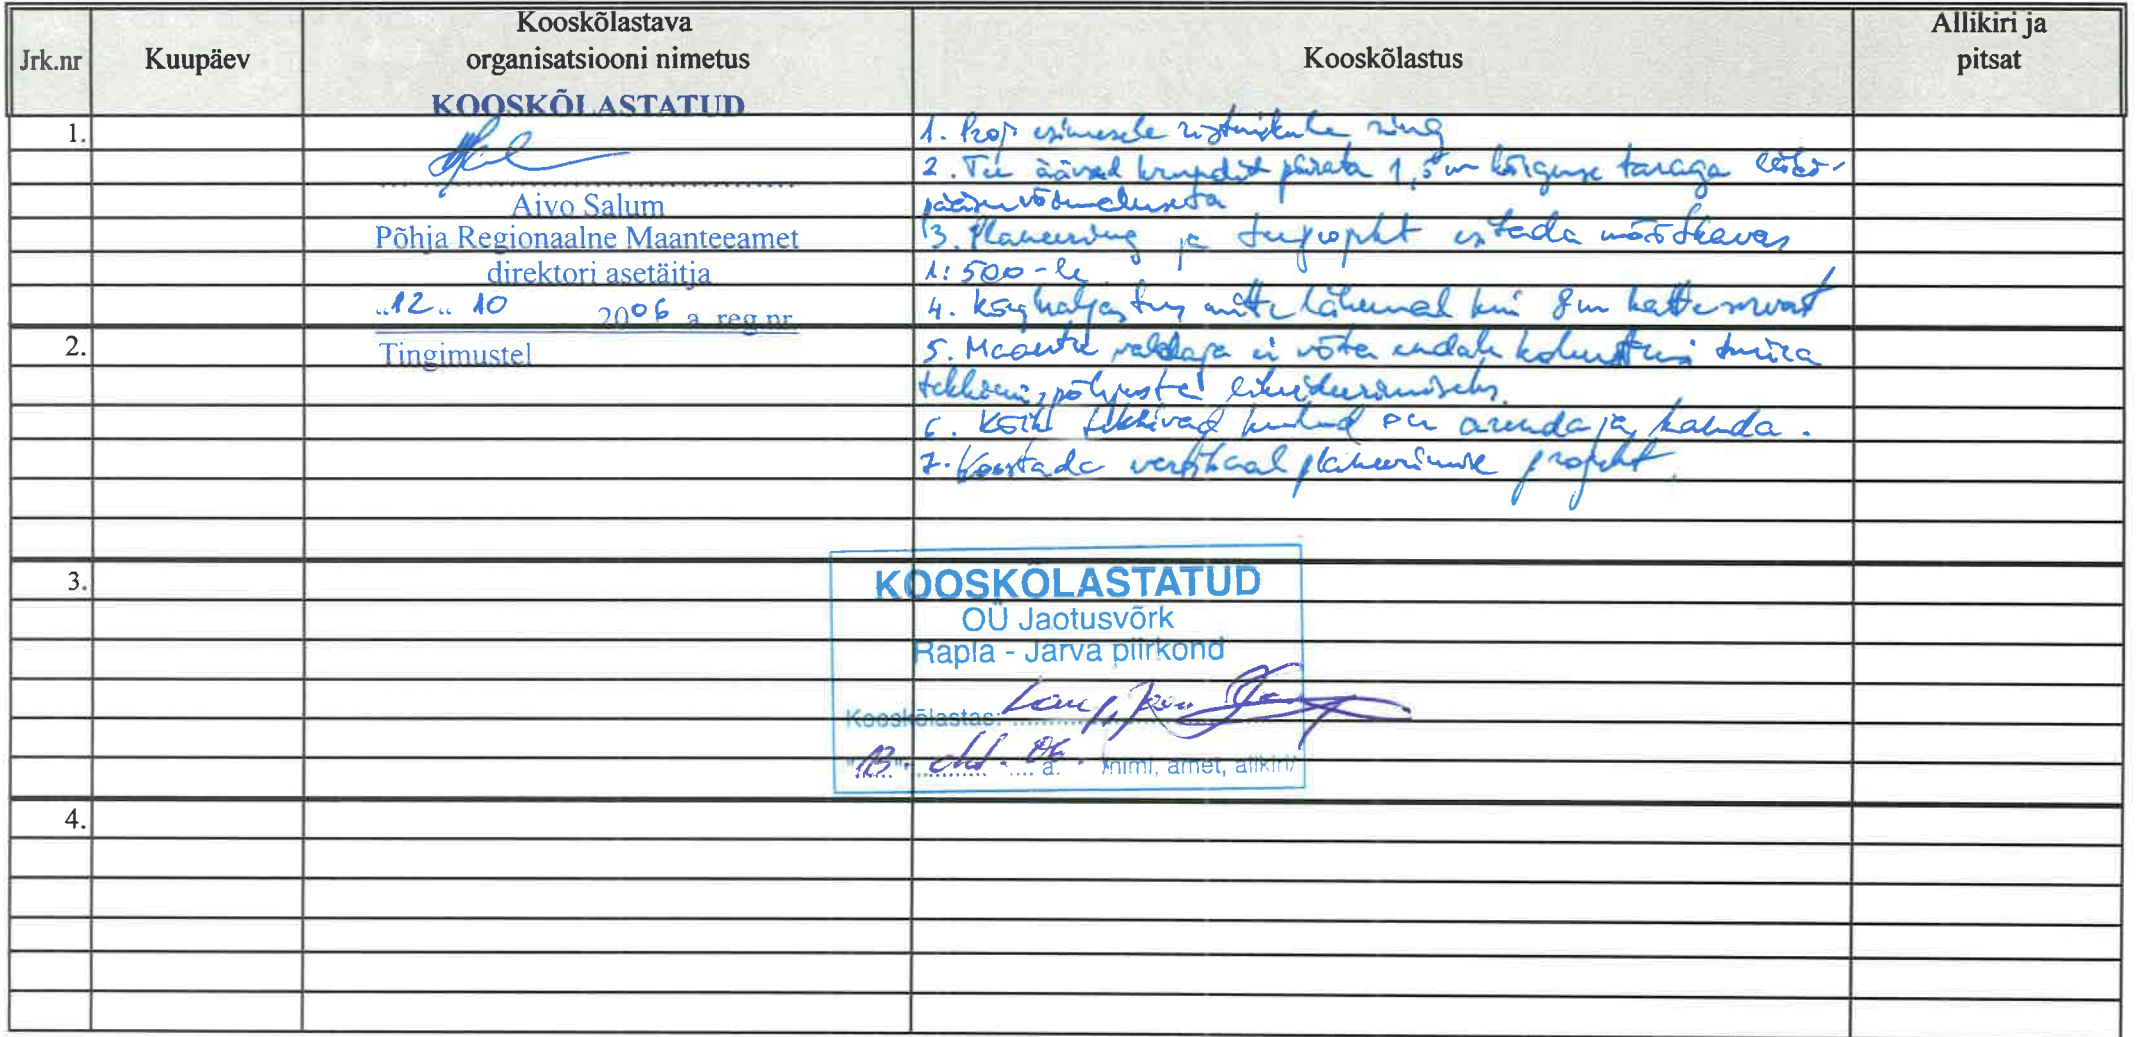 Jrk.nr
Kuupäev
Kooskõlastava
organisatsiooni nimetus
Kooskõlastus
Allikiri ja
pitsat
1.
KOOSKÕLASTATUD
Aivo Salum
Põhja Regionaalne Maanteeamet
direktori asetäitja
"12" 10 2006 a. reg.nr.
Tingimustel
1. Proj esimesele ristmikule ring
2. Tee äärsed krundid piirata 1,5m kõrguse taraga läbi-
pääsuvõimaluseta
3. Planeering ja teeprojekt esitada mõõtkavas
1:500-le
4. Kõrghaljastus mitte lähemal kui 8m katte servast
2.
5. Maantee valdaja ei võta endale kohustusi müra
tekkimispõhjuste likvideerimiseks.
6. Kõik tekkivad kulud on arendaja kanda.
7. Koostada vertikaalplaneerimise projekt.
3.
KOOSKÕLASTATUD
OÜ Jaotusvõrk
Rapla - Järva piirkond
Kooskõlastas:
"13" okt. 06 a. /nimi, amet, allkiri/
4.